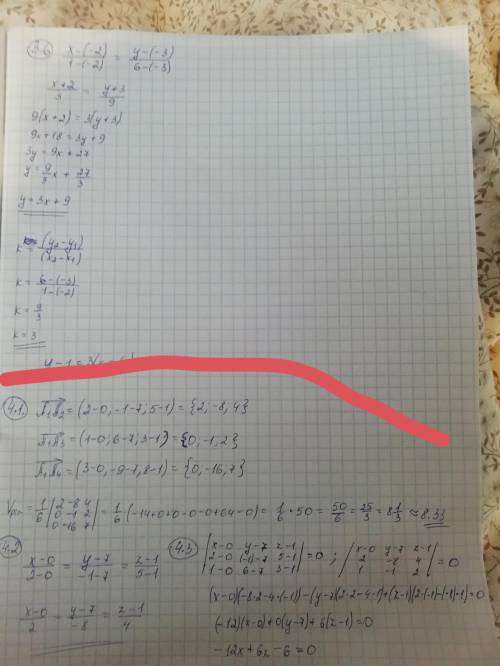 3.6 (x-(-2))/(1-(-2)) = (y-(-3))/(6-(-3))
(x+2)/3 = (y+3)/9
9(x+2)=3(y+3)
9x+18=3y+9
3y=9x+27
y=9/3x+27/3
y+3x+9
k=(y₂-y₁)/(x₂-x₁)
k=(6-(-3))/(1-(-2))
k=9/3
k=3
4.1. A₁A₂=(2-0,-1-7;5-1)={2;-8;4}
A₁A₃=(1-0;6-7;3-1)={0;-1,2}
A₁A₄=(3-0,-9-7,8-1)={0,-16,7}
=1/6|2 -8 4; 0 -1 2; 0 -16 7|=1/6(-14+0+0-0-0+64-0)=1/6*50=50/6=25/3=8 1/3≈8,33
4.2 (x-0)/(2-0)=(y-7)/(-1-7)=(z-1)/(5-1)
(x-0)/2=(y-7)/-8=(z-1)/4
4.3 |x-0 y-7 z-1; 2-0 (-1)-7 5-1; 1-0 6-7 3-1|=0; |x-0 y-7 z-1; 2 -8 4; 1 -1 2|=0
(x-0)(-8·2-4·(-1))-(y-7)(2·2-4·1)+(z-1)(2·(-1)-(-8)·1)=0
(-12)(x-0)+0(y-7)+6(z-1)=0
-12x+6z-6=0